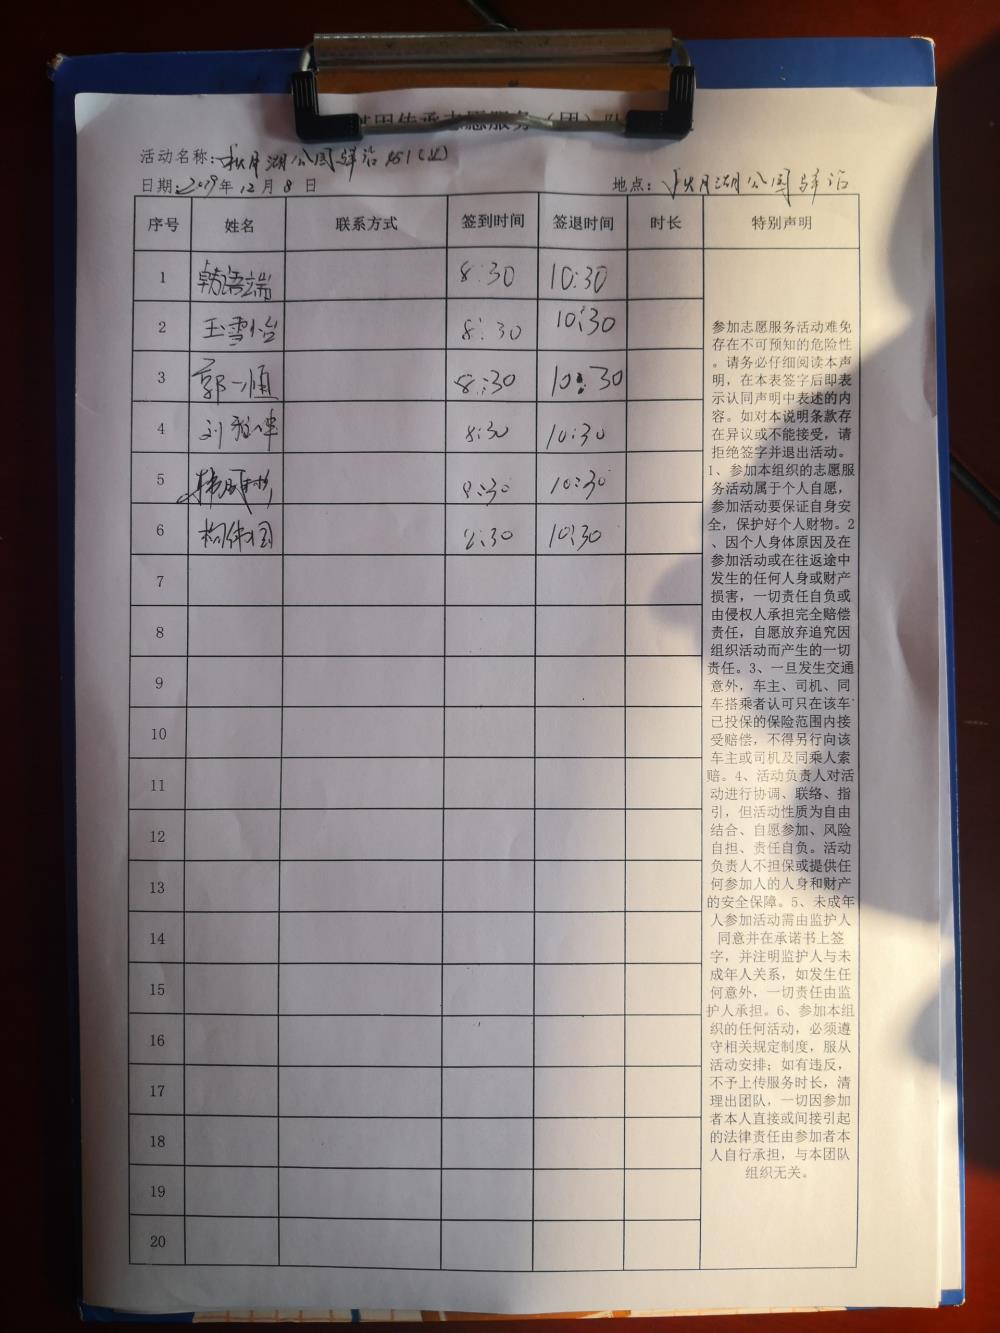 传承志愿服务（团）队
活动名称：秋月湖公园驿站 (上)
日期：2019年12月8日 地点：秋月湖公园驿站
序号 姓名 联系方式 签到时间 签退时间 时长 特别声明
1 韩语端 8:30 10:30
2 王雪怡 8:30 10:30
3 郭一顺 8:30 10:30
4 刘 8:30 10:30
5 8:30 10:30
6 8:30 10:30
7
8
9
10
11
12
13
14
15
16
17
18
19
20
参加志愿服务活动难免
存在不可预知的危险性
。请务必仔细阅读本声
明，在本表签字后即表
示认同声明中表述的内
容。如对本说明条款存
在异议或不能接受，请
拒绝签字并退出活动。
1、参加本组织的志愿服
务活动属于个人自愿，
参加活动要保证自身安
全，保护好个人财物。2
、因个人身体原因及在
参加活动或在往返途中
发生的任何人身或财产
损害，一切责任自负或
由侵权人承担完全赔偿
责任，自愿放弃追究因
组织活动而产生的一切
责任。3、一旦发生交通
意外，车主、司机、同
车搭乘者认可只在该车
已投保的保险范围内接
受赔偿，不得另行向该
车主或司机及同乘人索
赔。4、活动负责人对活
动进行协调、联络、指
引，但活动性质为自由
结合、自愿参加、风险
自担、责任自负。活动
负责人不担保或提供任
何参加人的人身和财产
的安全保障。5、未成年
人参加活动需由监护人
同意并在承诺书上签
字，并注明监护人与未
成年人关系，如发生任
何意外，一切责任由监
护人承担。6、参加本组
织的任何活动，必须遵
守相关规定制度，服从
活动安排；如有违反，
不予上传服务时长，清
理出团队，一切因参加
者本人直接或间接引起
的法律责任由参加者本
人自行承担，与本团队
组织无关。